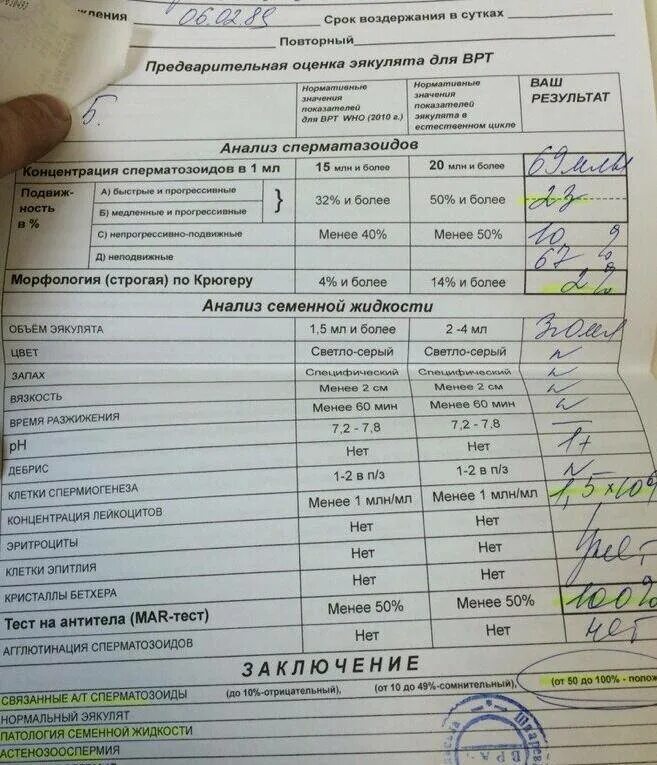 06.02.89 Срок воздержания в сутках
Повторный
Предварительная оценка эякулята для ВРТ
Б.
Нормативные значения показателей для ВРТ WHO (2010 г.) Нормативные значения показателей эякулята в естественном цикле ВАШ РЕЗУЛЬТАТ
Анализ сперматазоидов
Концентрация сперматозоидов в 1 мл 15 млн и более 20 млн и более 69 млн
Подвижность в %
А) быстрые и прогрессивные
Б) медленные и прогрессивные
} 32% и более 50% и более 23
С) непрогрессивно-подвижные Менее 40% Менее 50% 10 %
Д) неподвижные 67 %
Морфология (строгая) по Крюгеру 4% и более 14% и более 2%
Анализ семенной жидкости
ОБЪЁМ ЭЯКУЛЯТА 1,5 мл и более 2 -4 мл
ЦВЕТ Светло-серый Светло-серый N
ЗАПАХ Специфический Специфический N
ВЯЗКОСТЬ Менее 2 см Менее 2 см N
ВРЕМЯ РАЗЖИЖЕНИЯ Менее 60 мин Менее 60 мин N
pH 7,2 - 7,8 7,2 - 7,8 —
ДЕБРИС Нет Нет 1+
КЛЕТКИ СПЕРМИОГЕНЕЗА 1-2 в п/з 1-2 в п/з N
КОНЦЕНТРАЦИЯ ЛЕЙКОЦИТОВ Менее 1 млн/мл Менее 1 млн/мл 1,5 × 10⁶
ЭРИТРОЦИТЫ Нет Нет
КЛЕТКИ ЭПИТЛИЯ Нет Нет нет
КРИСТАЛЛЫ БЕТХЕРА Нет Нет
Тест на антитела (MAR-тест) Менее 50% Менее 50% 100%
АГГЛЮТИНАЦИЯ СПЕРМАТОЗОИДОВ Нет Нет нет
ЗАКЛЮЧЕНИЕ
СВЯЗАННЫЕ А/Т СПЕРМАТОЗОИДЫ (до 10%-отрицательный), (от 10 до 49%-сомнительный), (от 50 до 100% - полож
НОРМАЛЬНЫЙ ЭЯКУЛЯТ
ПАТОЛОГИЯ СЕМЕННОЙ ЖИДКОСТИ
АСТЕНОЗООСПЕРМИЯ
ВРА